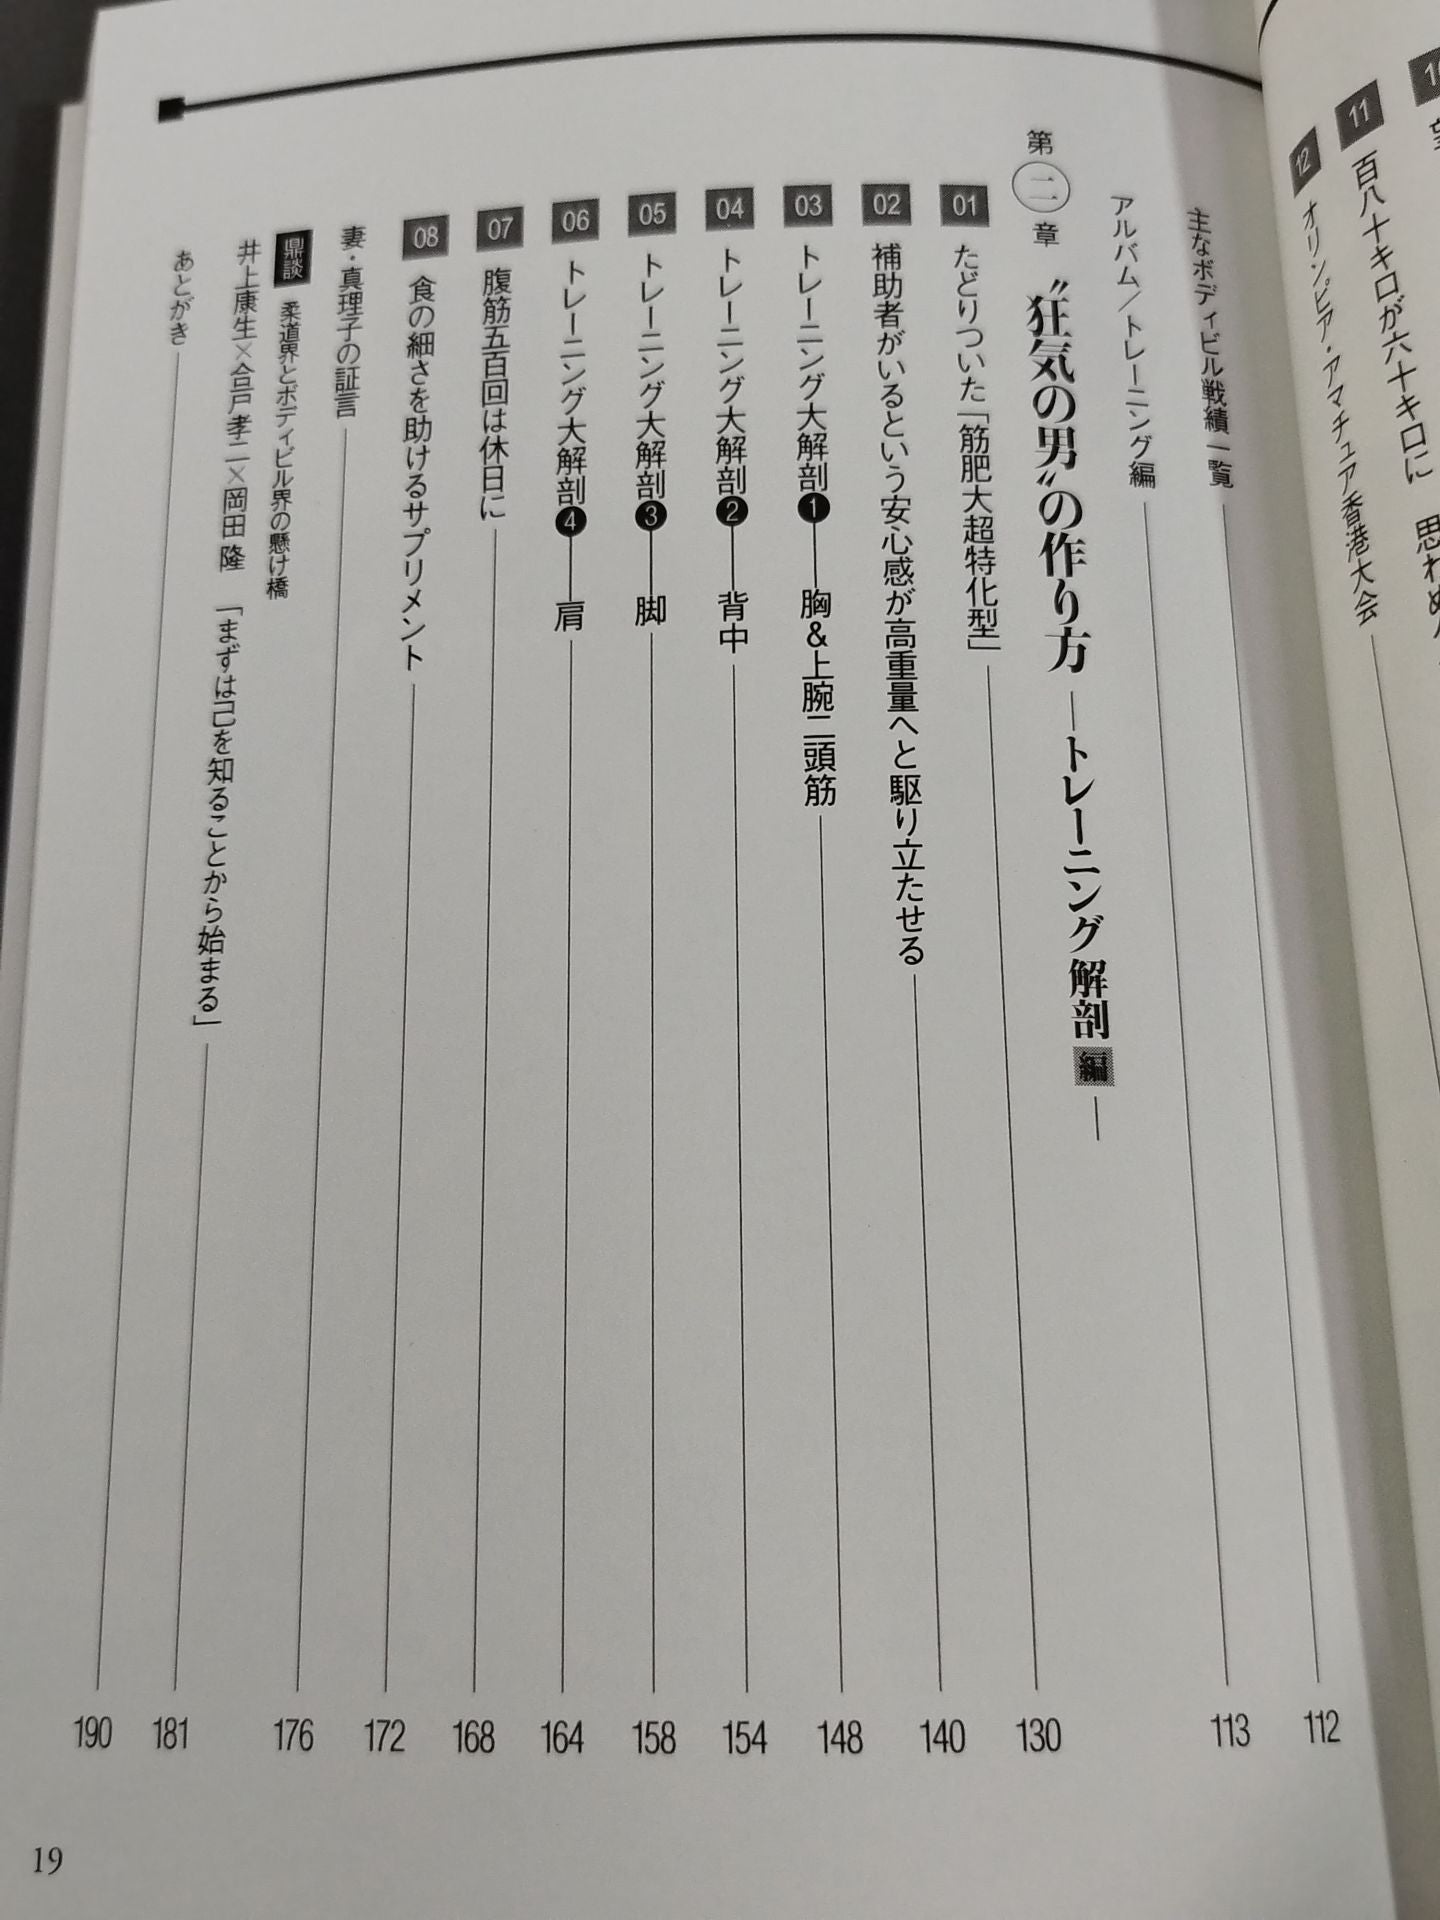 11 百八十キロが六十キロに
12 オリンピア・アマチュア香港大会
主なボディビル戦績一覧 112
アルバム／トレーニング編 113
第二章 〝狂気の男〟の作り方 ―トレーニング解剖編―
01 たどりついた「筋肥大超特化型」 130
02 補助者がいるという安心感が高重量へと駆り立たせる 140
03 トレーニング大解剖❶―胸&上腕二頭筋 148
04 トレーニング大解剖❷―背中 154
05 トレーニング大解剖❸―脚 158
06 トレーニング大解剖❹―肩 164
07 腹筋五百回は休日に 168
08 食の細さを助けるサプリメント 172
妻・真理子の証言 176
鼎談 柔道界とボディビル界の懸け橋
井上康生×合戸孝二×岡田 隆 「まずは己を知ることから始まる」 181
あとがき 190
19